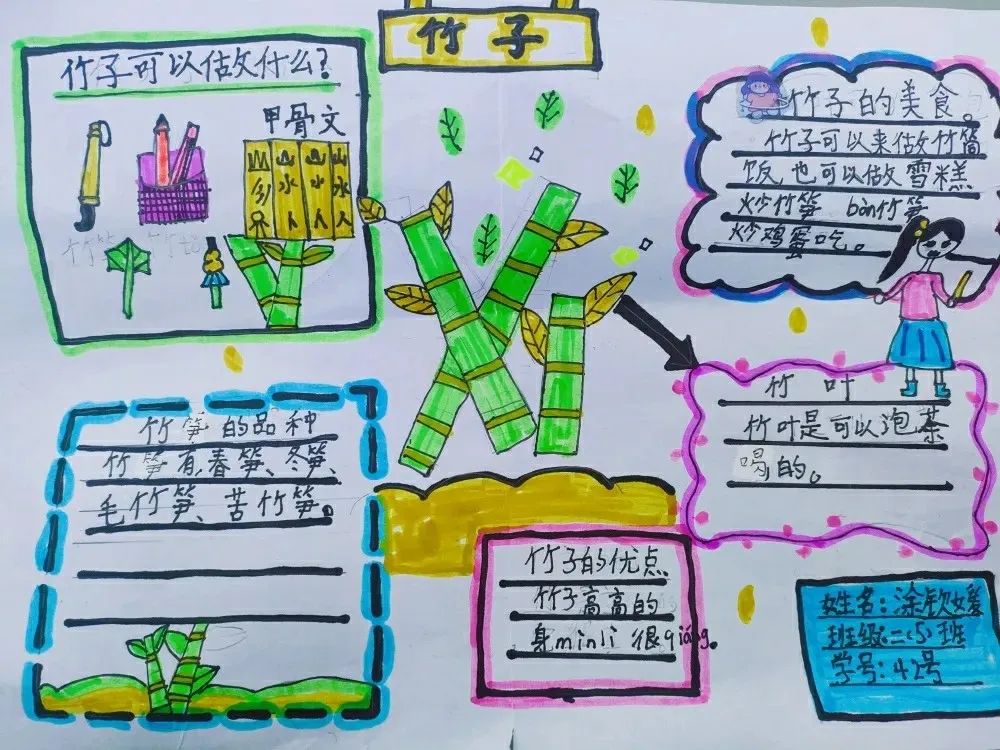 竹子
竹子可以估攵什么?
甲骨文
山 山 山 山
水 水 水
人 人 人
竹子的美食。
竹子可以来做竹筒
饭也可以做雪糕
炒竹笋 bàn竹笋
炒鸡蛋吃。
竹叶
竹叶是可以泡茶
喝的。
竹笋的品种
竹笋有春笋、冬笋、
毛竹笋、苦竹笋。
竹子的优点
竹子高高的
身minlì很qiáng。
姓名:涂钦媛
班级:二(5)班
学号:42号